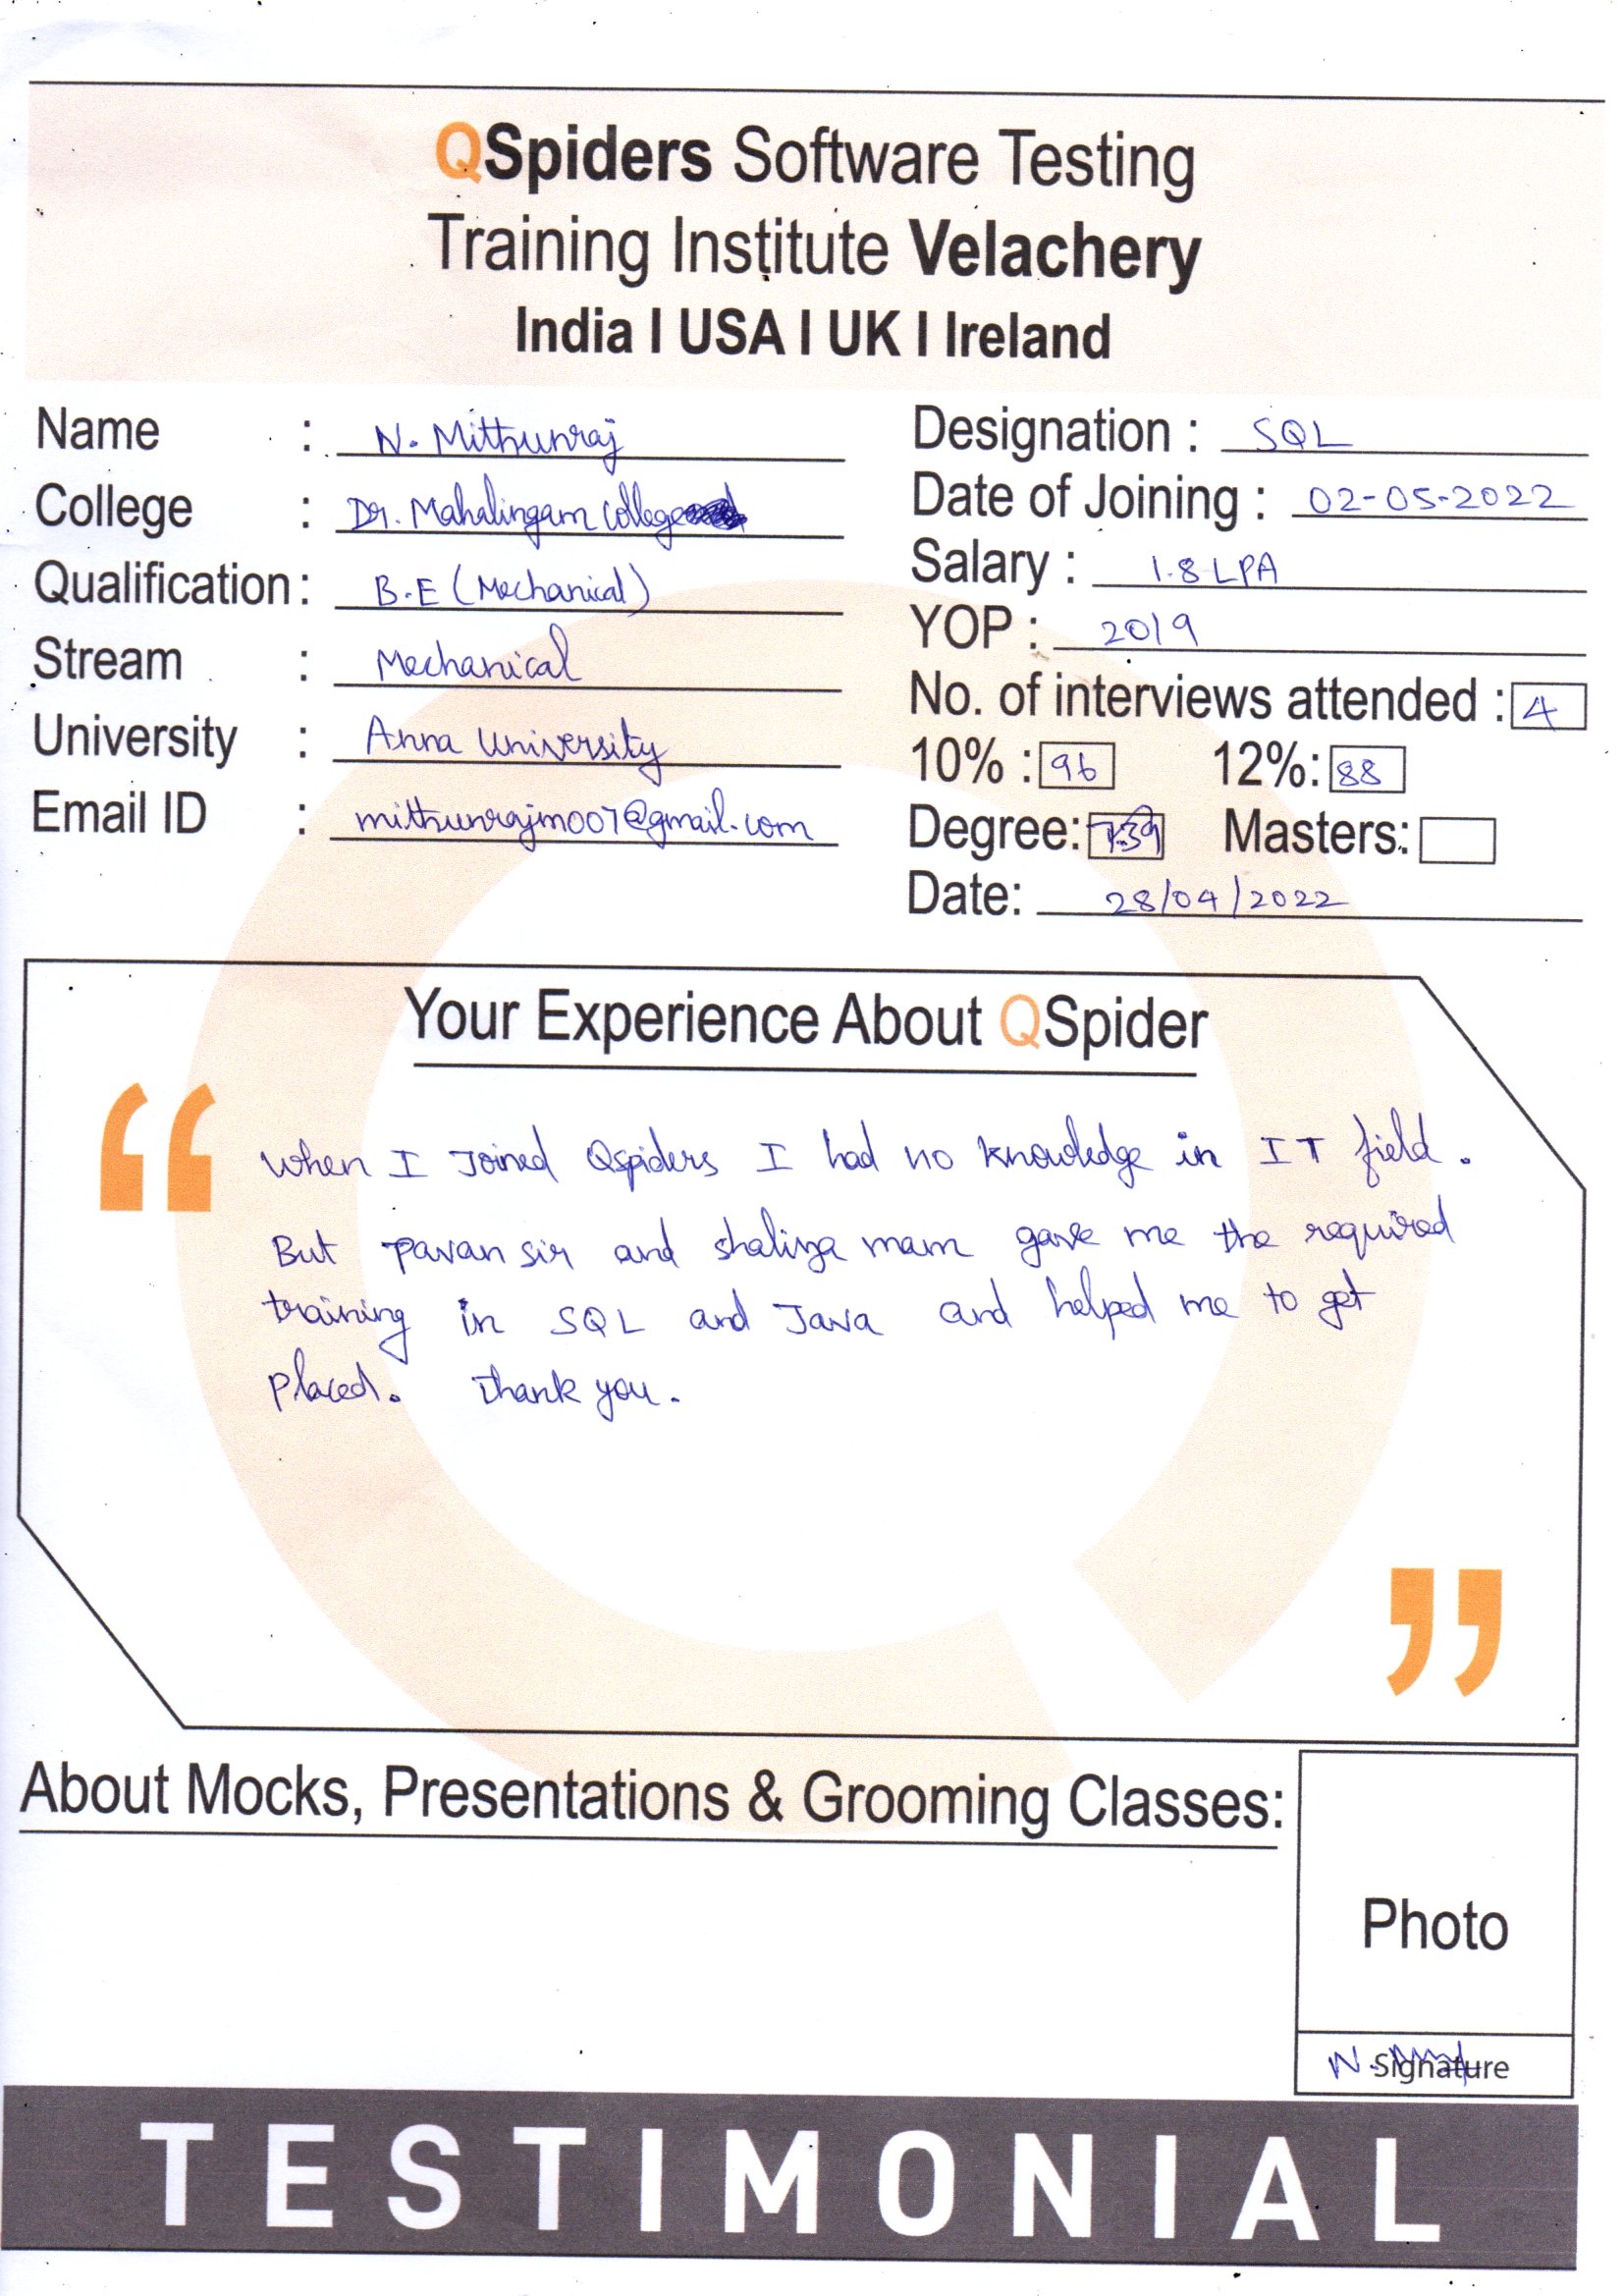 QSpiders Software Testing
Training Institute Velachery
India I USA I UK I Ireland
Name : N. Mithunraj
College : Dr. Mahalingam college
Qualification : B.E (Mechanical)
Stream : Mechanical
University : Anna University
Email ID : mithunrajm007@gmail.com
Designation : SQL
Date of Joining : 02-05-2022
Salary : 1.8 LPA
YOP : 2019
No. of interviews attended : 4
10% : 96 12%: 88
Degree: 7.39 Masters:
Date: 28/04/2022
Your Experience About QSpider
“
When I Joined Qspiders I had no knowledge in IT field.
But Pavan sir and shaliza mam gave me the required
training in SQL and Java and helped me to get
placed. Thank you.
”
About Mocks, Presentations & Grooming Classes:
Photo
N. Signature
TESTIMONIAL